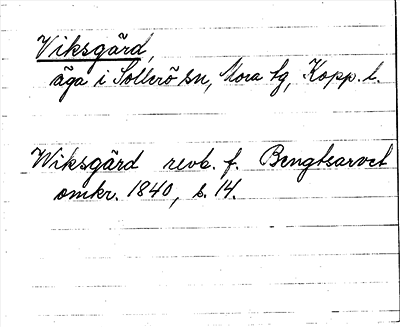 Viksgård,
äga i Sollerö sn, Mora tg, Kopp. l.
Wiksgård revb. f. Bengtsarvet
omkr. 1840, s. 14.